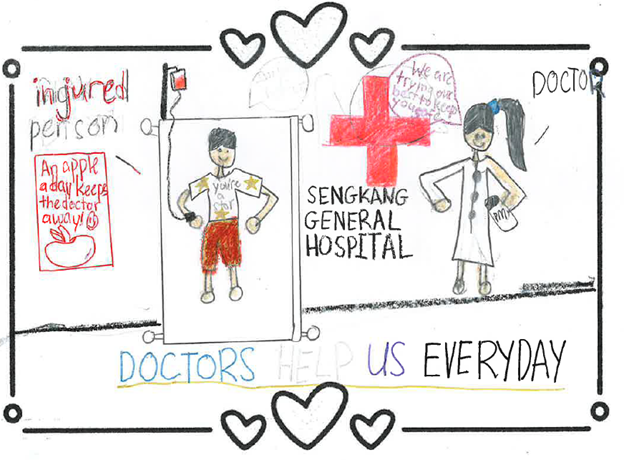 injured
person
An apple
a day keeps
the doctor
away!
you're
a
star
We are
trying our
best to keep
you safe
DOCTOR
SENGKANG
GENERAL
HOSPITAL
DOCTORS HELP US EVERYDAY